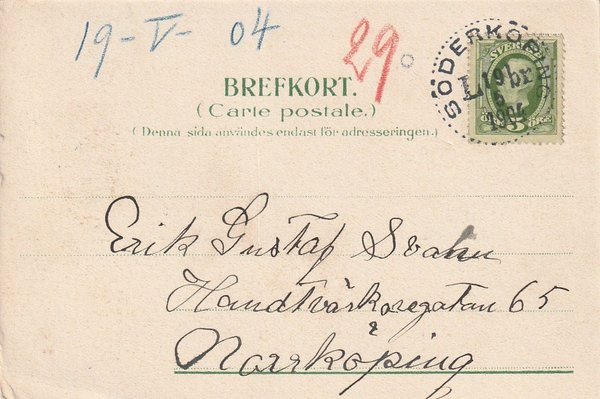 19-V-04
29
BREFKORT.
(Carte postale.)
(Denna sida användes endast för adresseringen.)
SÖDERKÖPING
SVERIGE
ÖRE
Erik Gustaf Svahn
Handtvärkaregatan 65
Norrköping